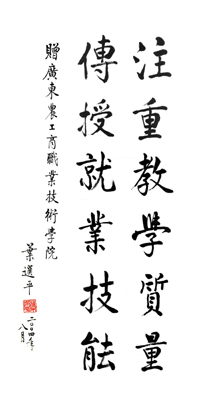 注重教學質量
傳授就業技能
贈廣東農工商職業技術學院
葉選平
二〇〇四年
八月